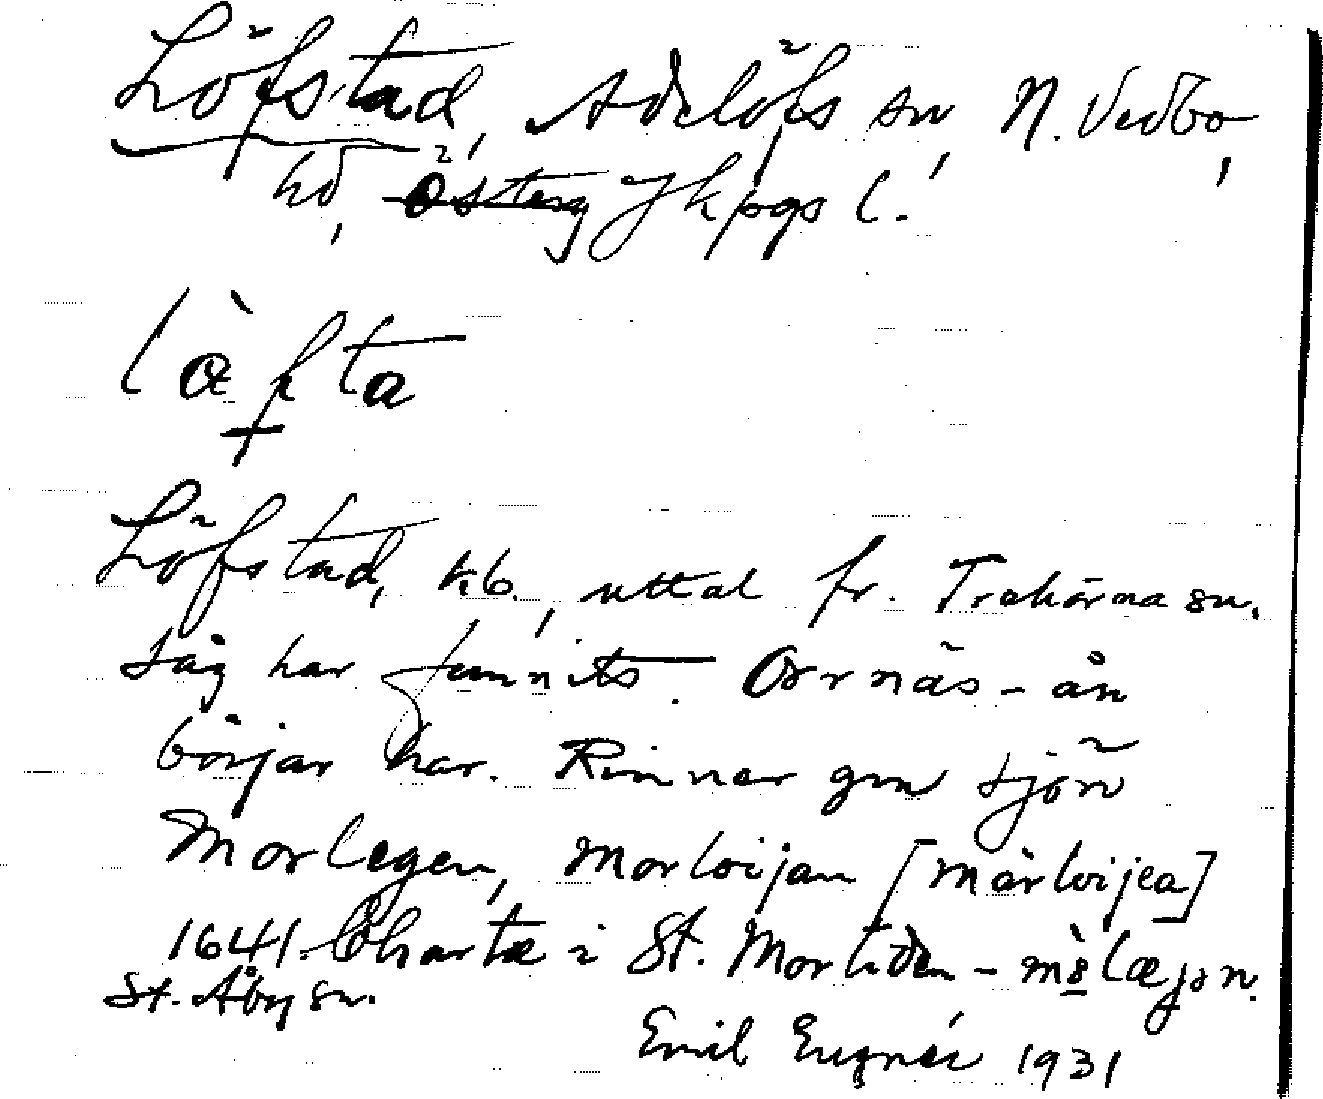 Löfstad, Adelöfs sn, N. Vedbo,
hd, Österg Jkpgs l.
læ̀fta
Löfstad, kb., uttal fr. Trehörna sn.
Såg har funnits. Orrnäs-ån
börjar här. Rinner gm sjön
Morlegen, Morloijan [Mårloijea]
1641. Charta i St. Morliden - læjən.
St. Åby sn.
Emil 1931